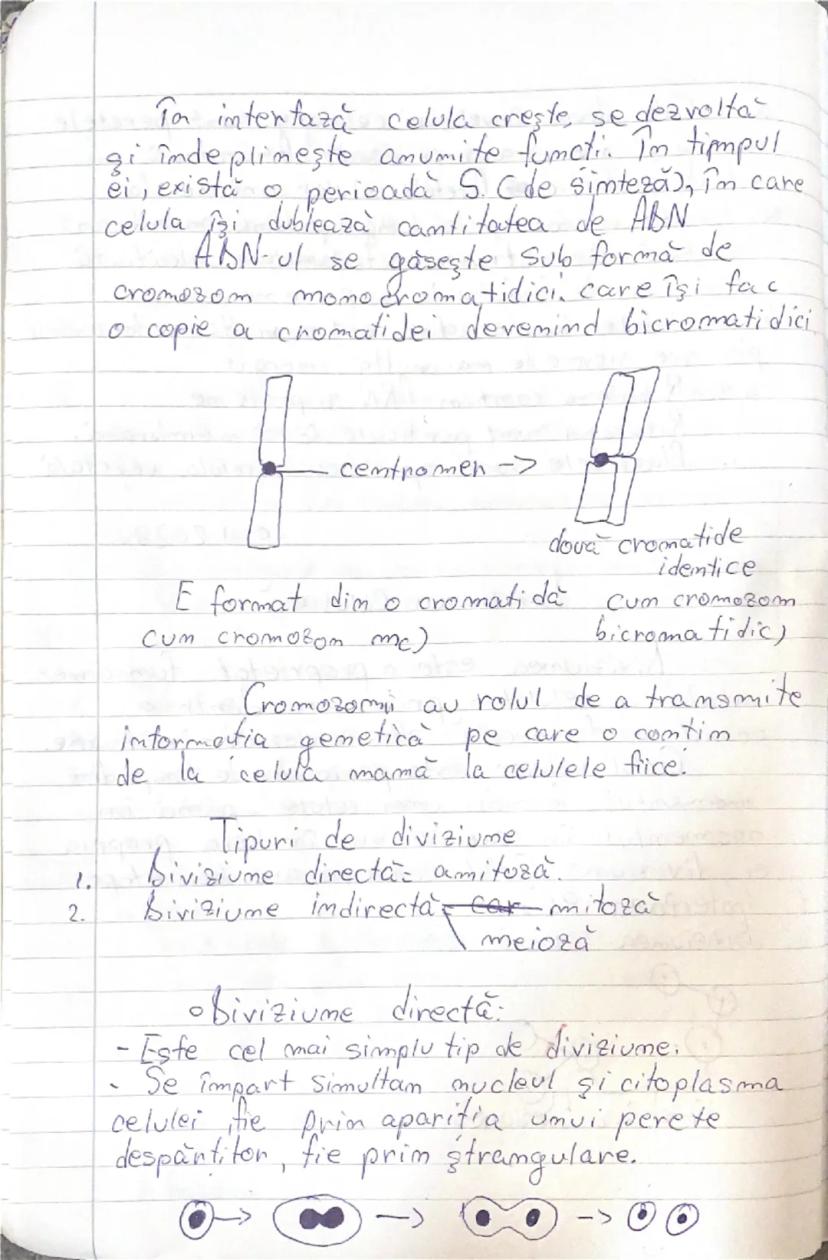 În interfază celula crește, se dezvoltă
și îndeplinește anumite functi. În tipmpul
ei, există o perioadă S (de sinteză), în care
celula își dublează cantitatea de ADN
ADN-ul se găsește sub formă de
cromozom monocromatidici. care își fac
o copie a cromatidei devenind bicromatidici
centromer ->
două cromatide
identice
E format din o cromatidă cum cromozom
cum cromozom mc) bicromatidic)
Cromozomii au rolul de a transmite
informația genetică pe care o contin
de la celula mamă la celulele fiice.
Tipuri de diviziune
1. Diviziune directă= amitoză.
2. Diviziune indirectă= car mitoză
meioză
Diviziune directă:
- Este cel mai simplu tip de diviziune.
- Se împart simultan nucleul și citoplasma
celulei, fie prin apariția unui perete
despărțitor, fie prin ștrangulare.